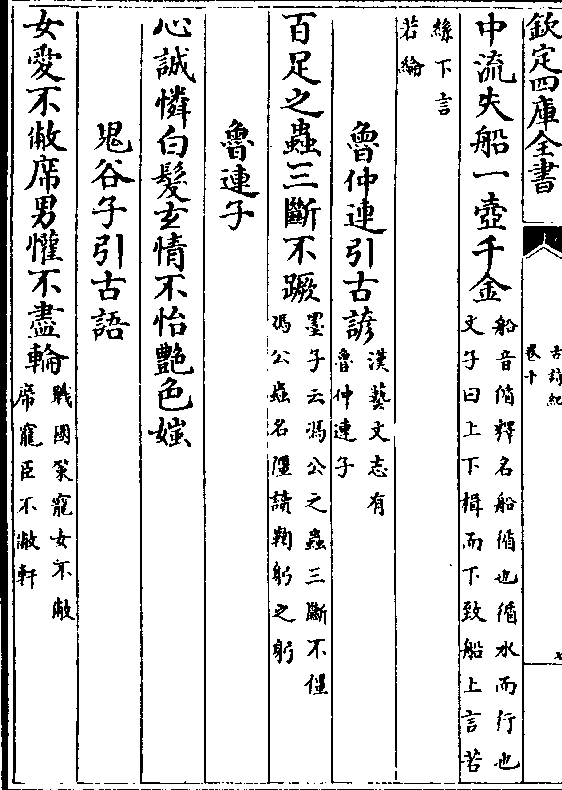 欽定四庫全書
古詩紀
卷十
七
中流失船一壺千金
船音循釋名船循也循水而行也
文子曰上下楫而下致船上言若
絲下言
若綸
魯仲連引古諺
漢藝文志有
魯仲連子
百足之蟲三斷不蹶
墨子云馮公之蟲三斷不僵
馮公蟲名僵讀鞠躬之躬
魯連子
心誠憐白髮玄情不怡艷色媸
鬼谷子引古語
女愛不敝席男懽不盡輪
戰國策寵女不敝
席寵臣不敝軒